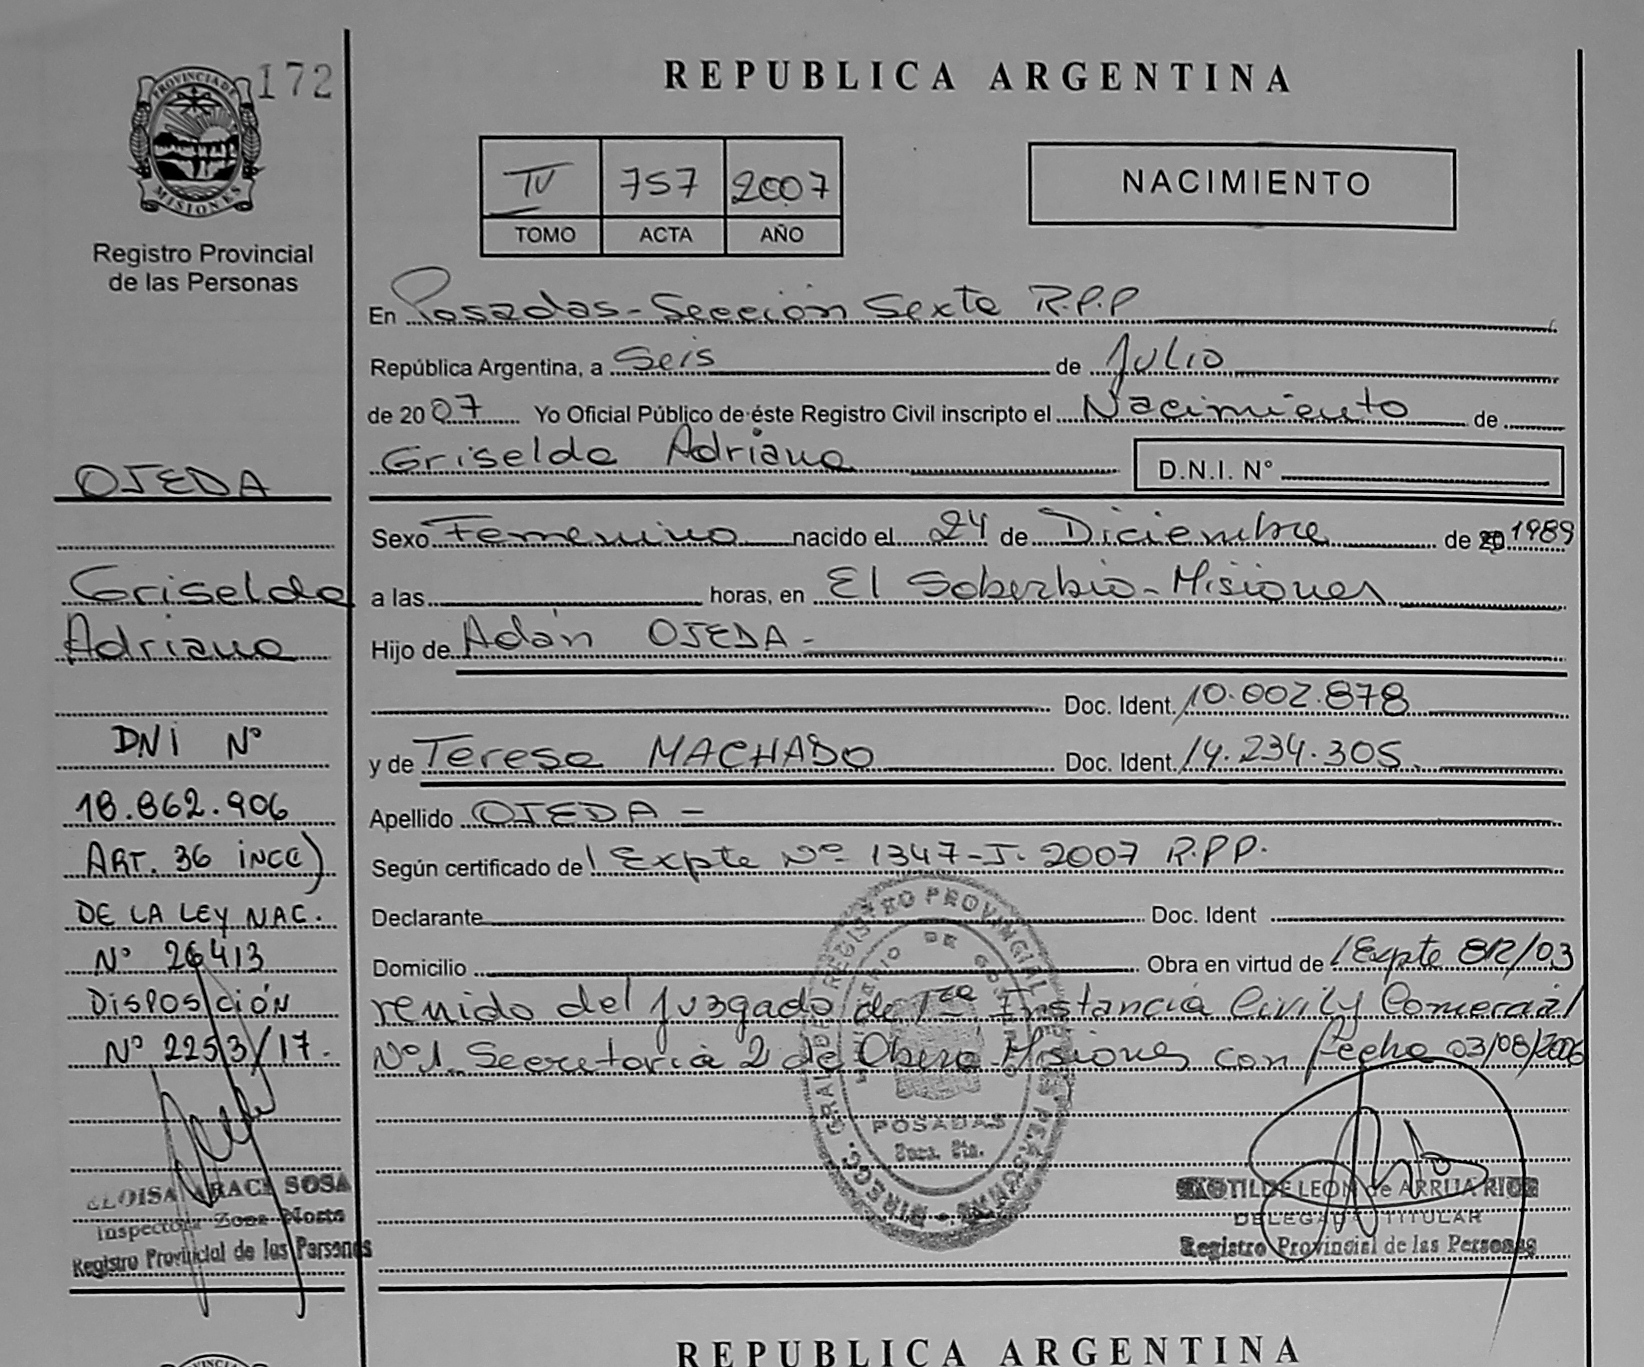 172
PROVINCIA DE
MISIONES
Registro Provincial
de las Personas
OJEDA
Griselda
Adriana
DNI Nº
18.862.906
ART. 36 INC C)
DE LA LEY NAC.
Nº 26413
DISPOSICIÓN
Nº 2253/17.
SOSA
Inspectora Zona Norte
Registro Provincial de las Personas
REPUBLICA ARGENTINA
IV 757 2007
TOMO ACTA AÑO
NACIMIENTO
En Posadas-Sección Sexta R.P.P
República Argentina, a Seis de Julio
de 2007 Yo Oficial Público de éste Registro Civil inscripto el Nacimiento de
Griselda Adriana D.N.I. N°
Sexo Femenino nacido el 24 de Diciembre de 1989
a las horas, en El Soberbio-Misiones
Hijo de Adán OJEDA-
Doc. Ident. 10.002.878
y de Teresa MACHADO Doc. Ident. 14.234.305.
Apellido OJEDA-
Según certificado de Expte Nº 1347-J-2007 R.P.P.
Declarante Doc. Ident
Domicilio Obra en virtud de Expte 812/03
renido del Juzgado de 1ra Instancia Civil y Comercial
Nº1. Secretoria 2 de Obera-Misiones con fecha 03/08/2006
REGISTRO PROVINCIAL DE LAS PERSONAS
POSADAS
Secc. 6ta.
CLOTILDE LEON de ARRUA RIOS
DELEGADA TITULAR
Registro Provincial de las Personas
REPUBLICA ARGENTINA